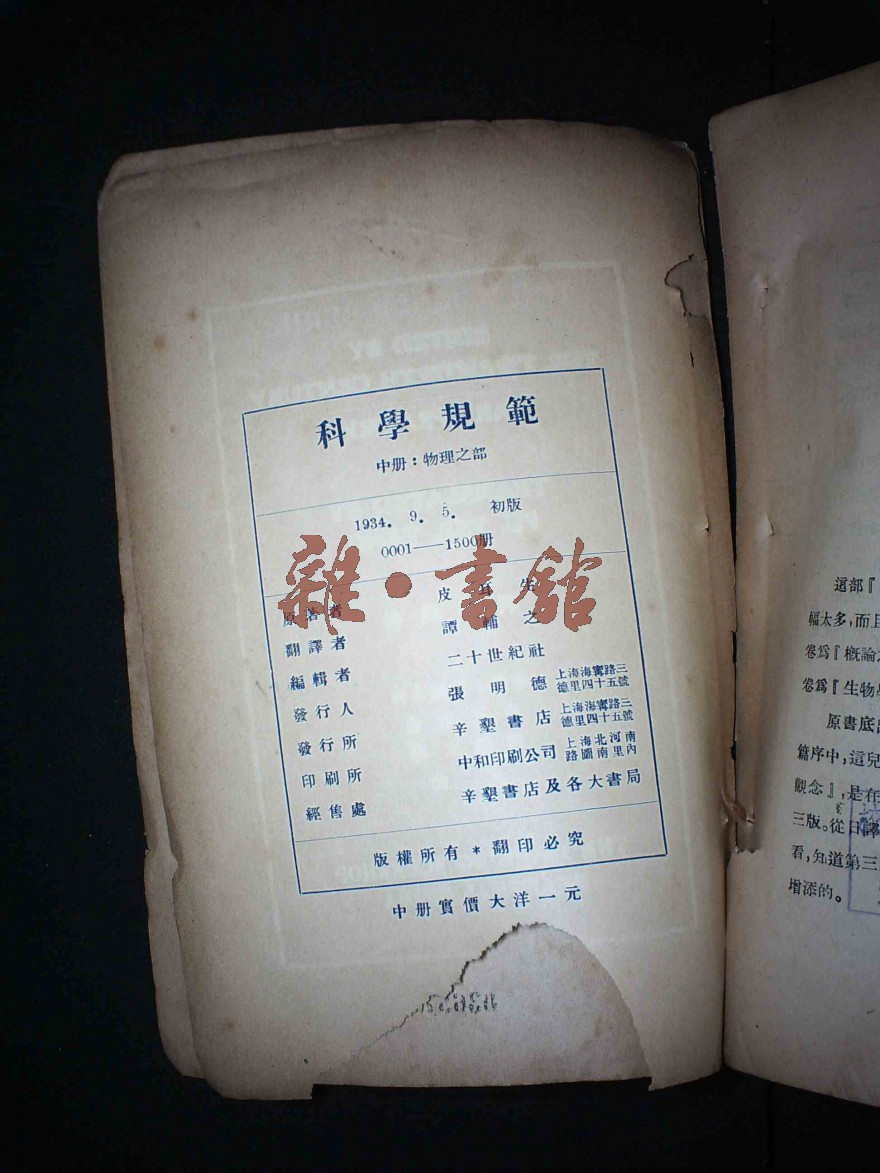 科學規範
中册：物理之部
1934. 9. 5. 初版
0001——1500册
雜·書館
原著者 皮耳生
翻譯者 譚輔之
編輯者 二十世紀社
發行人 張明德 上海海寗路三德里四十五號
發行所 辛墾書店 上海海寗路三德里四十五號
印刷所 中和印刷公司 上海北河南路圖南里內
經售處 辛墾書店及各大書局
版權所有＊翻印必究
中册實價大洋一元
這部『
幅太多，而且
卷爲『概論
卷爲『生物
原書底
篇序中，這兒
觀念』，是在
三版。從日譯
看，知道第三
增添的。